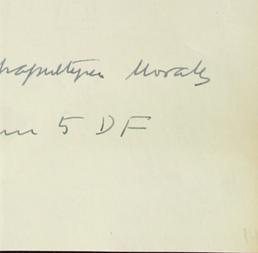 hapultepec Morales
5 DF